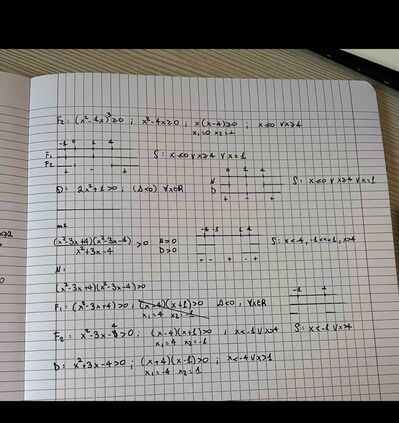 F₂: (x²-4x)³≥0 ; x²-4x≥0 ; x(x-4)≥0 ; x≤0 ∨ x≥4
x₁=0 x₂=4
-1 0 1 4
F₁
F₂
+ - +
S: x≤0 ∨ x≥4 ∨ x=1
0 1 4
N
D
+ - - +
S: x≤0 ∨ x≥4 ∨ x=1
D: 2x²+1>0 ; (Δ<0) ∀x∈R
(x²-3x+4)(x²-3x-4) >0 N>0
x²+3x-4 D>0
-4 -1 1 4
+ - + - +
S: x<-4, -1<x<1, x>4
N:
(x²-3x+4)(x²-3x-4)>0
F₁: (x²-3x+4)>0 ; (x-4)(x+1)>0 Δ<0, ∀x∈R
x₁=4 x₂=-1
-1 4
F₂: x²-3x-4>0 ; (x-4)(x+1)>0 ; x<-1 ∨ x>4
x₁=4 x₂=-1
S: x<-1 ∨ x>4
D: x²+3x-4>0 ; (x+4)(x-1)>0 ; x<-4 ∨ x>1
x₁=-4 x₂=1